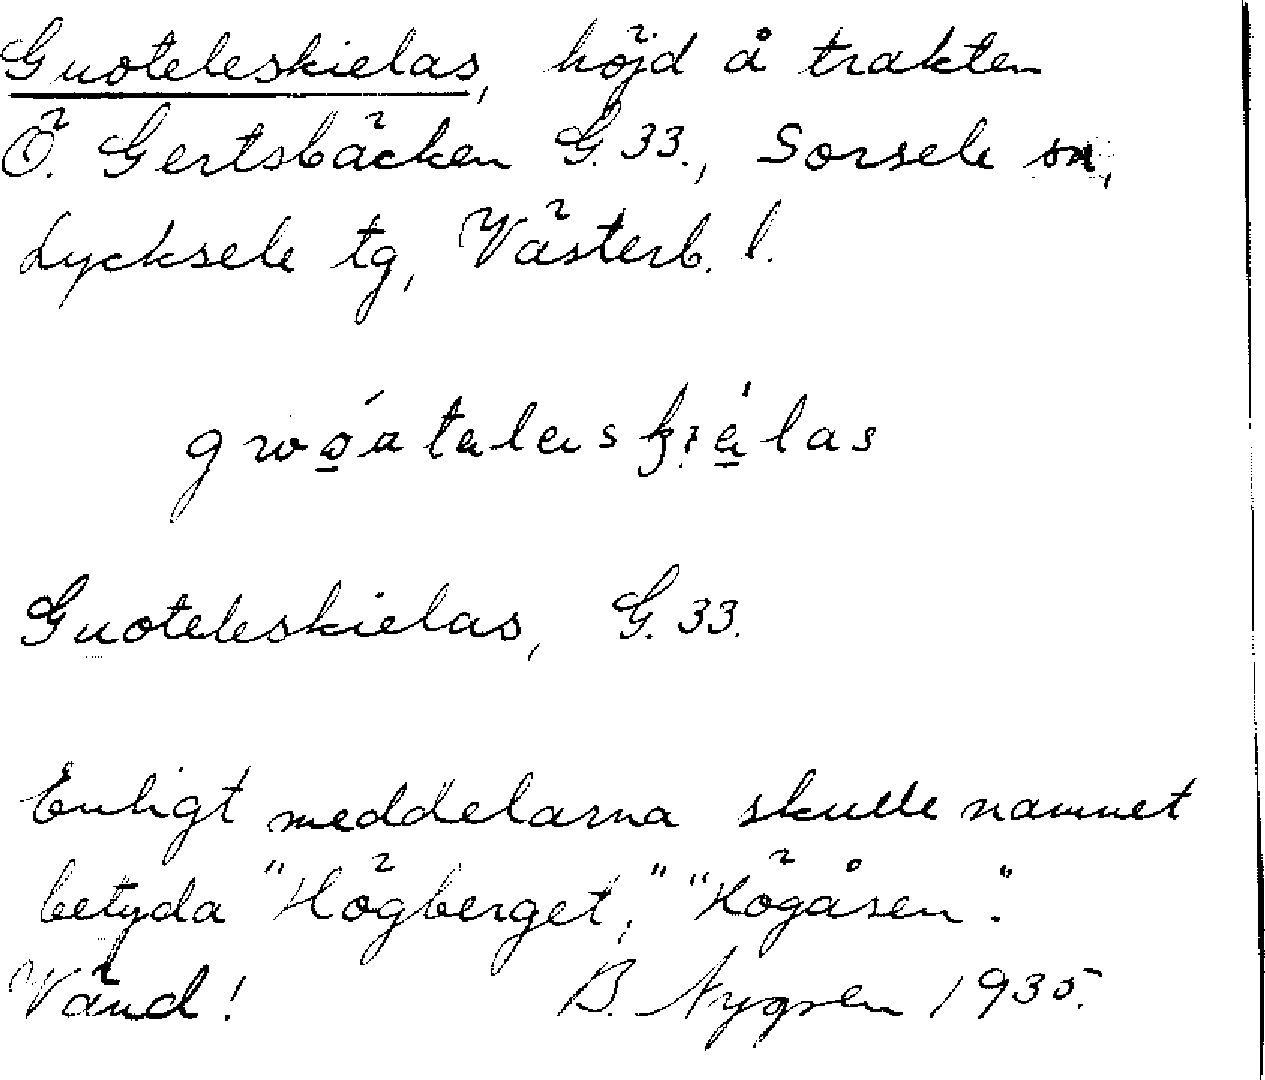 Guoteleskielas, höjd å trakten
Ö. Gertsbäcken G. 33., Sorsele sn,
Lycksele tg, Västerb. l.
Guoteleskielas, G. 33.
Enligt meddelarna skulle namnet
betyda "Högberget," "Högåsen".
Vänd! B. Nygren 1935.